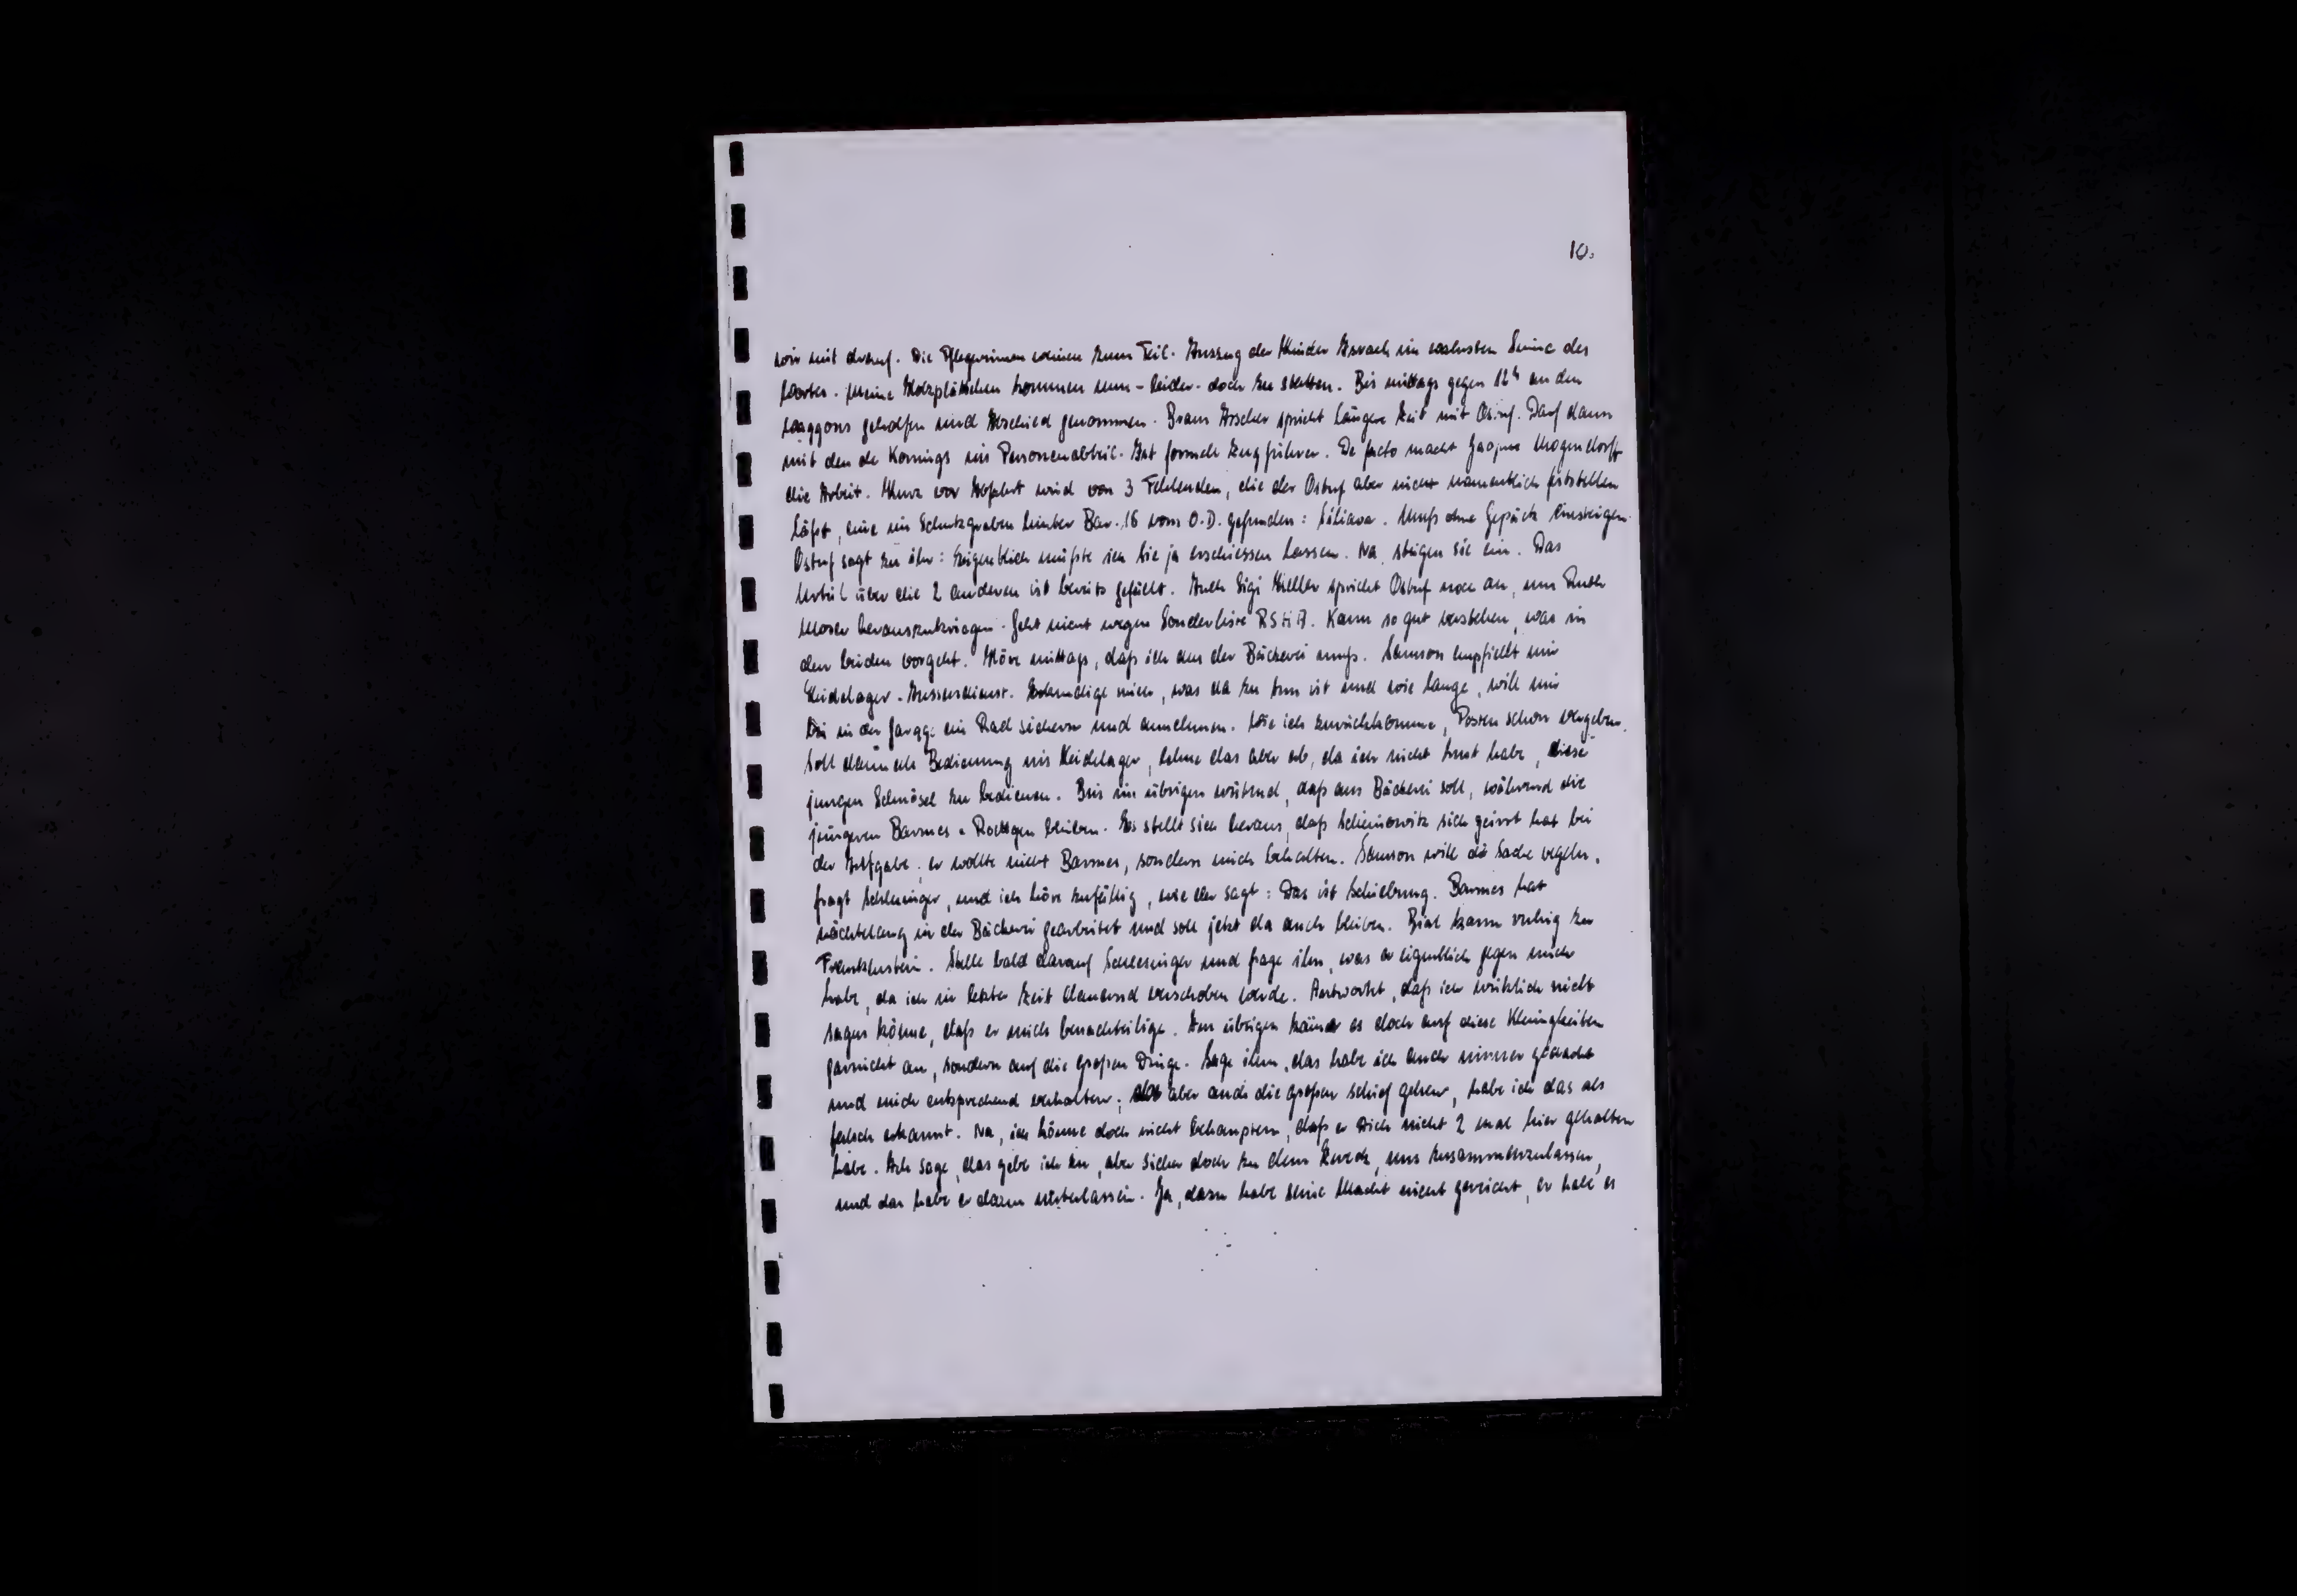 10.
wir mit drauf. Die Pflegerinnen weinen zum Teil. Auszug der Kinder Israels im wahrsten Sinne des
Wortes. Meine Holzplättchen kommen nun - leider - doch zu statten. Bis mittags gegen 12h an den
Waggons geholfen und Abschied genommen. Bram Asscher spricht längere Zeit mit Ostuf. Darf dann
mit den de Konings ins Personenabteil. Ist formell Zugführer. De facto macht Jacques Mogendorff
die Arbeit. Kurz vor Abfahrt wird von 3 Fehlenden, die der Ostuf aber nicht namentlich feststellen
läßt, eine im Schutzgraben hinter Bar. 16 vom O.D. gefunden: Muß ohne Gepäck einsteigen.
Ostuf sagt zu ihr: Eigentlich müßte ich Sie ja erschiessen lassen. Na, steigen Sie ein. Das
Urteil über die 2 anderen ist bereits gefällt. Auch Sigi Keller spricht Ostuf noch an, um Ruth
Moser herauszukriegen. Geht nicht wegen Sonderliste RSHA. Kann so gut verstehen, was in
den beiden vorgeht. Höre mittags, daß ich aus der Bäckerei muß. Samson empfiehlt mir
Heidelager-Aussendienst. Erkundige mich, was da zu tun ist und wie lange, will mir
bei in der ein Rad sichern und annehmen. Wie ich zurückkomme, Posten schon vergeben.
Soll dann als Bedienung ins Heidelager, lehne das aber ab, da ich nicht Lust habe, diese
jungen Schnösel zu bedienen. Bin im übrigen wütend, daß aus Bäckerei soll, während die
jüngeren Barmes u. Roettgen bleiben. Es stellt sich heraus, daß Scheinowitz sich geirrt hat bei
der Aufgabe; er wollte nicht Barmes, sondern mich behalten. Samson will die Sache regeln,
fragt Schlesinger, und ich höre zufällig, wie der sagt: Das ist Schiebung. Barmes hat
nächtelang in der Bäckerei gearbeitet und soll jetzt da auch bleiben. Bial kann ruhig zu
Frankenstein. Stelle bald darauf Schlesinger und frage ihn, was er eigentlich gegen mich
habe, da ich in letzter Zeit dauernd verschoben werde. Antwortet, daß ich wirklich nicht
sagen könne, daß er mich benachteilige. Im übrigen käme es doch auf diese Kleinigkeiten
garnicht an, sondern auf die großen Dinge. Sage ihm, das habe ich auch immer gedacht
und mich entsprechend verhalten; da aber auch die großen schief gehen, habe ich das als
falsch erkannt. Na, ich könne doch nicht behaupten, daß er Dich nicht 2 mal hier gehalten
habe. Ich sage, das gebe ich zu, aber sicher doch zu dem Zweck, uns zusammenzulassen,
und das habe er dann unterlassen. Ja, dazu habe seine Macht nicht gereicht, er habe es